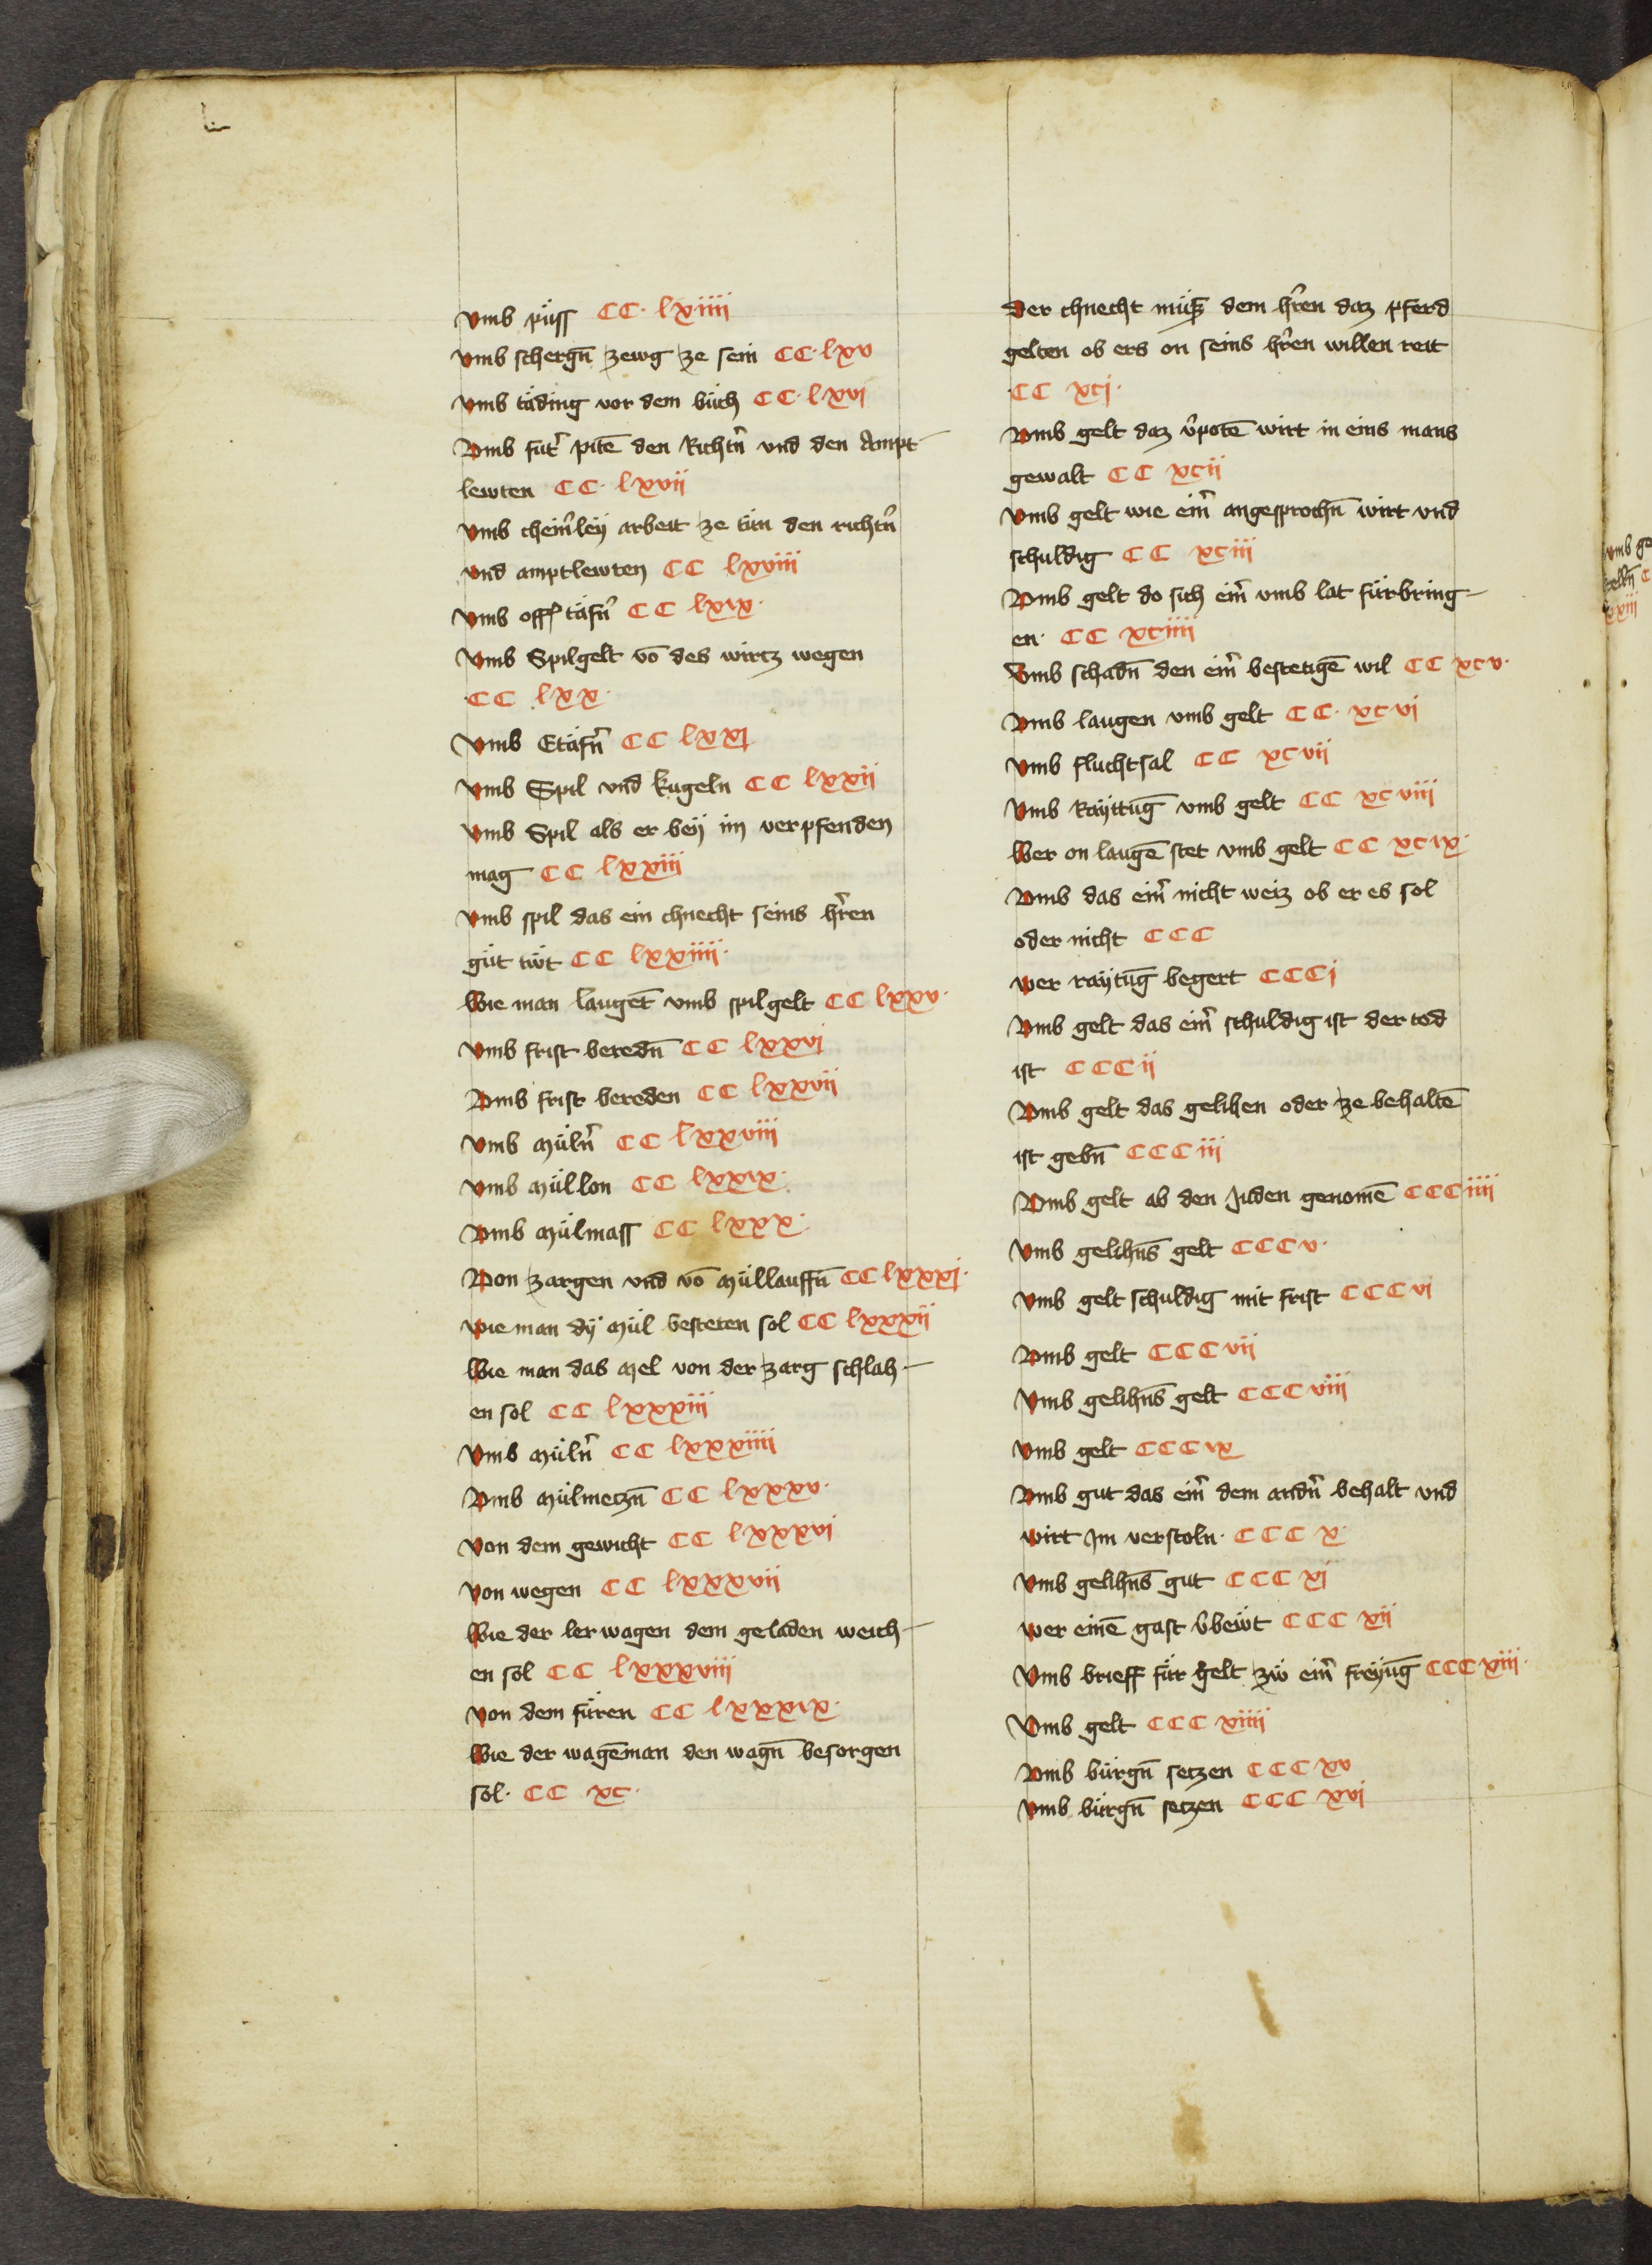 Vmb püss CC· lxiiii
Vmb schergn̄ zewg ze sein CC· lxv
Vmb täding vor dem büch CC· lxvi
Vmb fut̄ pitē den Richtn̄ vnd den Ampt-
lewten CC· lxvii
Vmb cheinr̄ley arbeit ze tün den richtn̄
vnd amptlewten CC lxviii
Vmb täfn̄ CC lxix·
Vmb Spilgelt vō des wirtz wegen
CC lxx·
Vmb Etäfn̄ CC lxxi
Vmb Spil vnd kugeln CC lxxii
Vmb Spil als er bey im verpfenden
mag CC lxxiii
Vmb spil das ein chnecht seins hr̄en
güt tüt CC lxxiiii·
Wie man laugēt vmb spilgelt CC lxxv·
Vmb frist beredn̄ CC lxxvi
Vmb frist bereden CC lxxvii
Vmb müln̄ CC lxxviii
Vmb müllon CC lxxix·
Vmb mülmass CC lxxx·
Von zargen vnd vō müllauffn̄ CC lxxxi·
Wie man dÿ mül besteten sol CC lxxxii
Wie man das mel von der zarg schlah-
en sol CC lxxxiii
Vmb müln̄ CC lxxxiiii
Vmb mülmetzn̄ CC lxxxv·
Von dem gewicht CC lxxxvi
Von wegen CC lxxxvii
Wie der ler wagen dem geladen weich-
en sol CC lxxxviii
Von dem füren CC lxxxix·
Wie der wagēman den wagn̄ besorgen
sol· CC xc·
Der chnecht müsz dem hr̄en daz pferd
gelten ob ers on seins hr̄en willen reit
CC xci·
Vmb gelt daz v̄potē wirt in eins mans
gewalt CC xcii
Vmb gelt wie eim̄ angesprochn̄ wirt vnd
schuldig CC xciii
Vmb gelt do sich eim̄ vmb lat fürbring-
en· CC xciiii
Vmb schadn̄ den eim̄ bestetigē wil CC xcv·
Vmb laugen vmb gelt CC· xcvi
Vmb fluchtsal CC xcvii
Vmb Rayttūg vmb gelt CC xcviii
Wer on laugē stet vmb gelt CC xcix·
Vmb das eim̄ nicht weiz ob er es sol
oder nicht CCC
Wer raytūg begert CCCi
Vmb gelt das eim̄ schuldig ist der tod
ist CCCii
Vmb gelt das gelihen oder ze behaltē
ist gebn̄ CCCiii
Vmb gelt ab den Juden genomē CCCiiii
Vmb gelihns̄ gelt CCCv·
Vmb gelt schuldig mit frist CCCvi
Vmb gelt CCCvii
Vmb gelihns̄ gelt CCCviii
Vmb gelt CCCix
Vmb gut das eim̄ dem andn̄ behalt vnd
wirt Jm verstoln· CCC x·
Vmb gelihns̄ gut CCC xi
Wer einē gast v̄bewt CCC xii
Vmb brieff für gelt zw eim̄ freyūg CCC xiii·
Vmb gelt CCC xiiii
Vmb bürgn̄ setzen CCC xv
Vmb bürgn̄ setzen CCC xvi